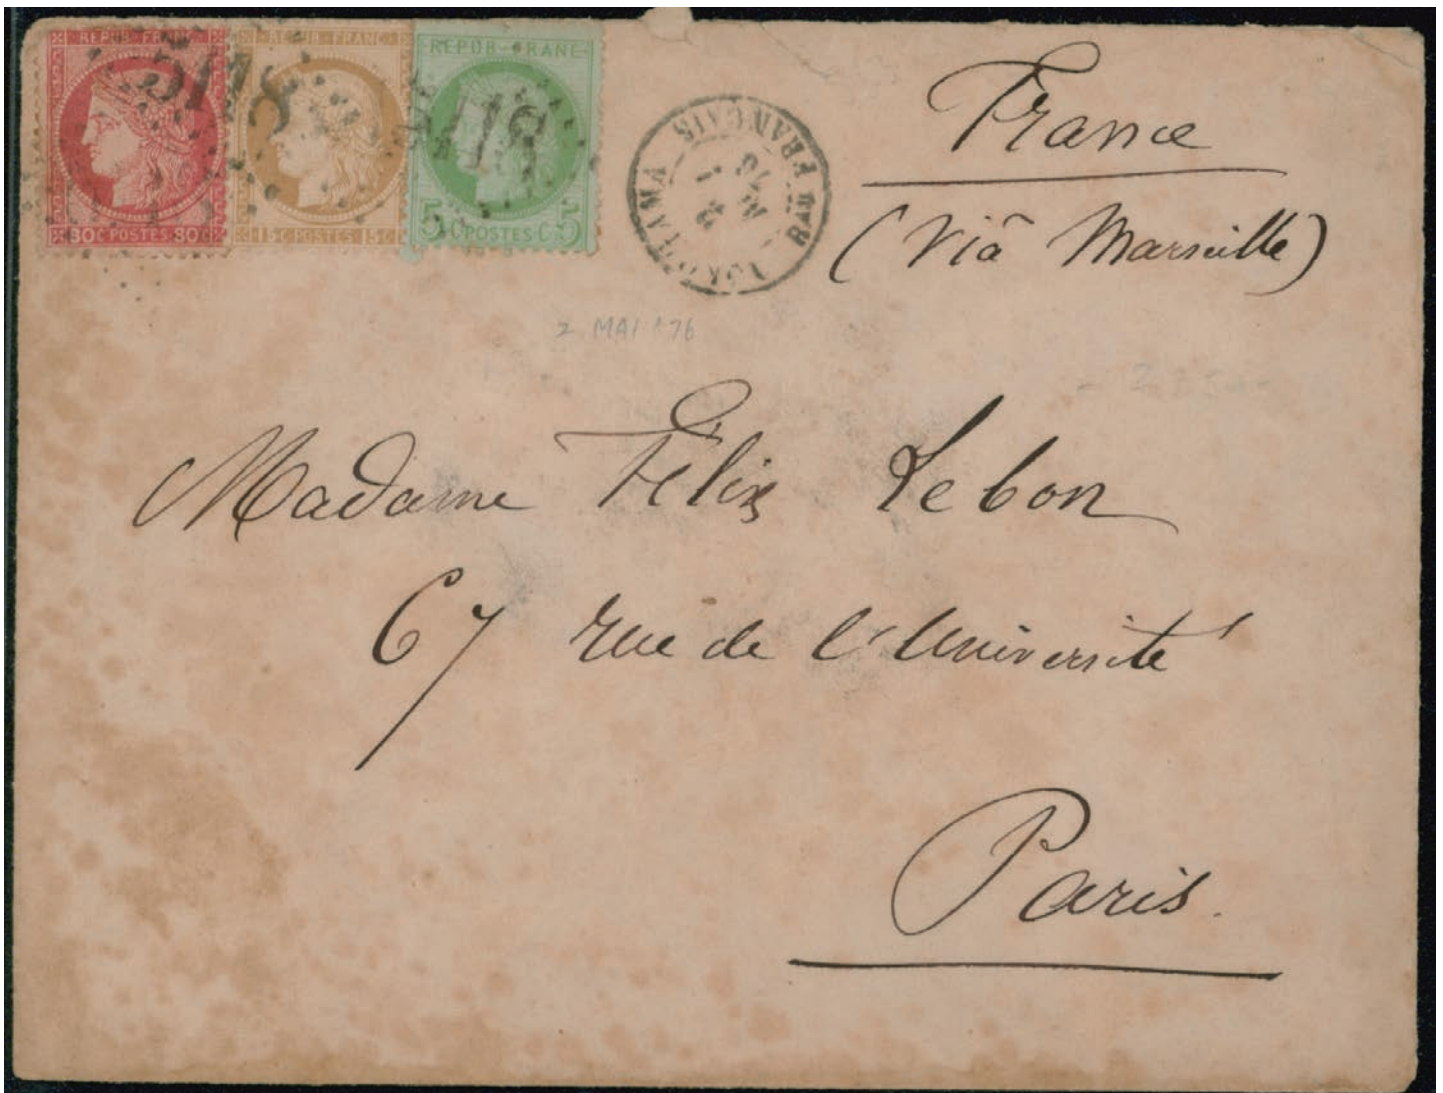 REPUB · FRANC
80 C POSTES 80 C
5118
REPUB · FRANC
15 C POSTES 15 C
REPUB · FRANC
5 C POSTES C 5
5118
YOKOHAMA
Bau FRANCAIS
2
MAI
76
France
(Viâ Marseille)
2 MAI 76
Madame Félix Lebon
67 rue de l'Université
Paris.